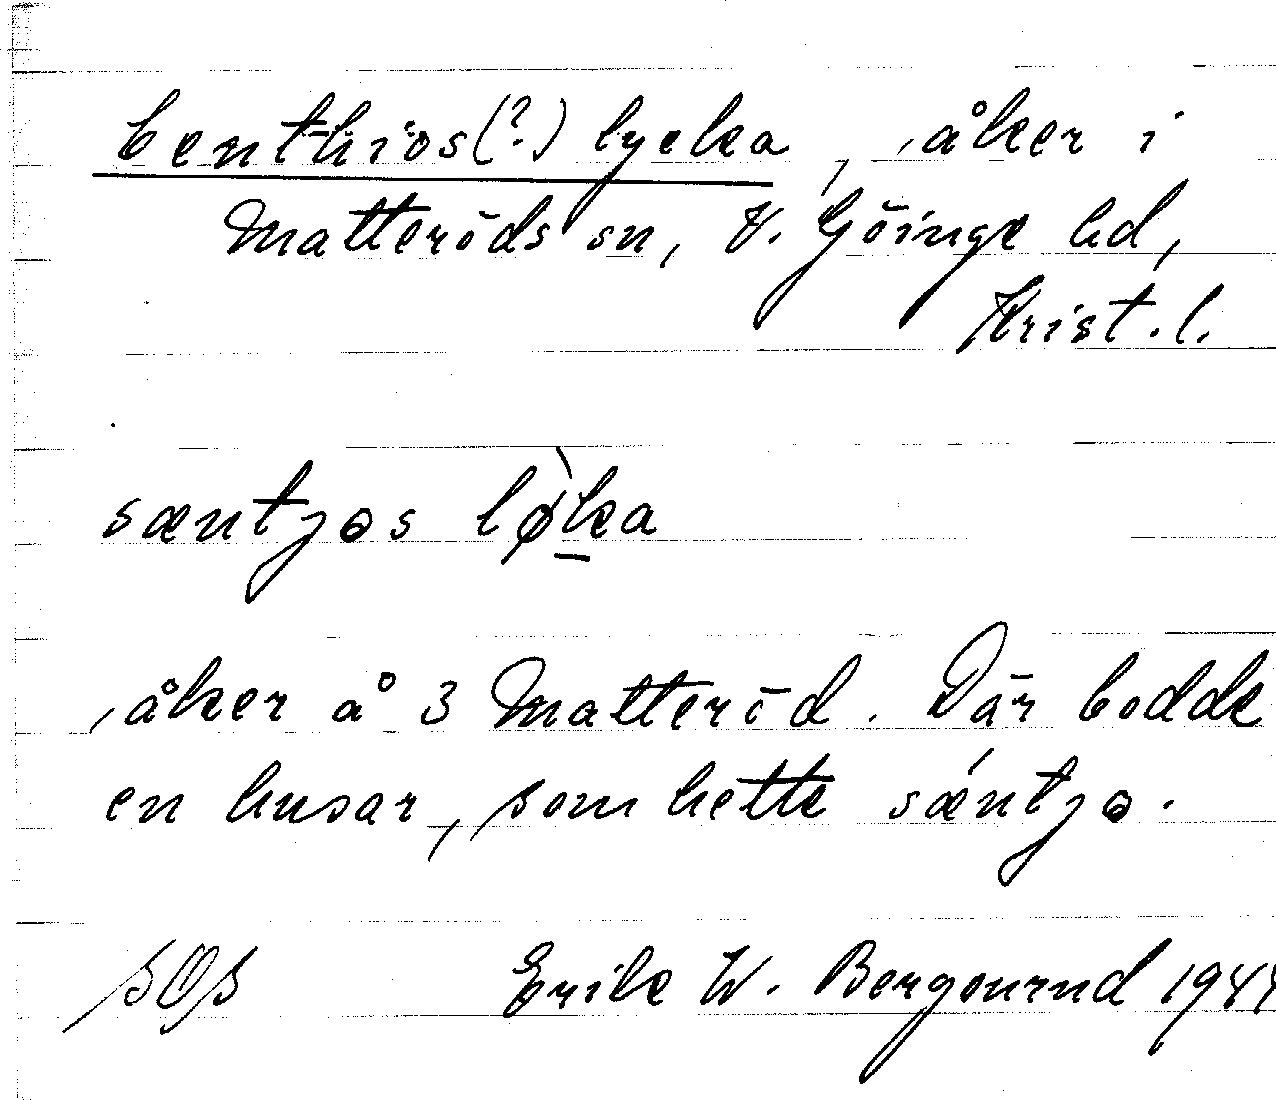 Centhios(?) lycka, åker i
Matteröds sn, V. Göinge hd,
Krist. l.
sæntjos løka
åker å 3 Matteröd. Där bodde
en husar, som hette sæntjo.
SOS Erik W. Bergournd 1944